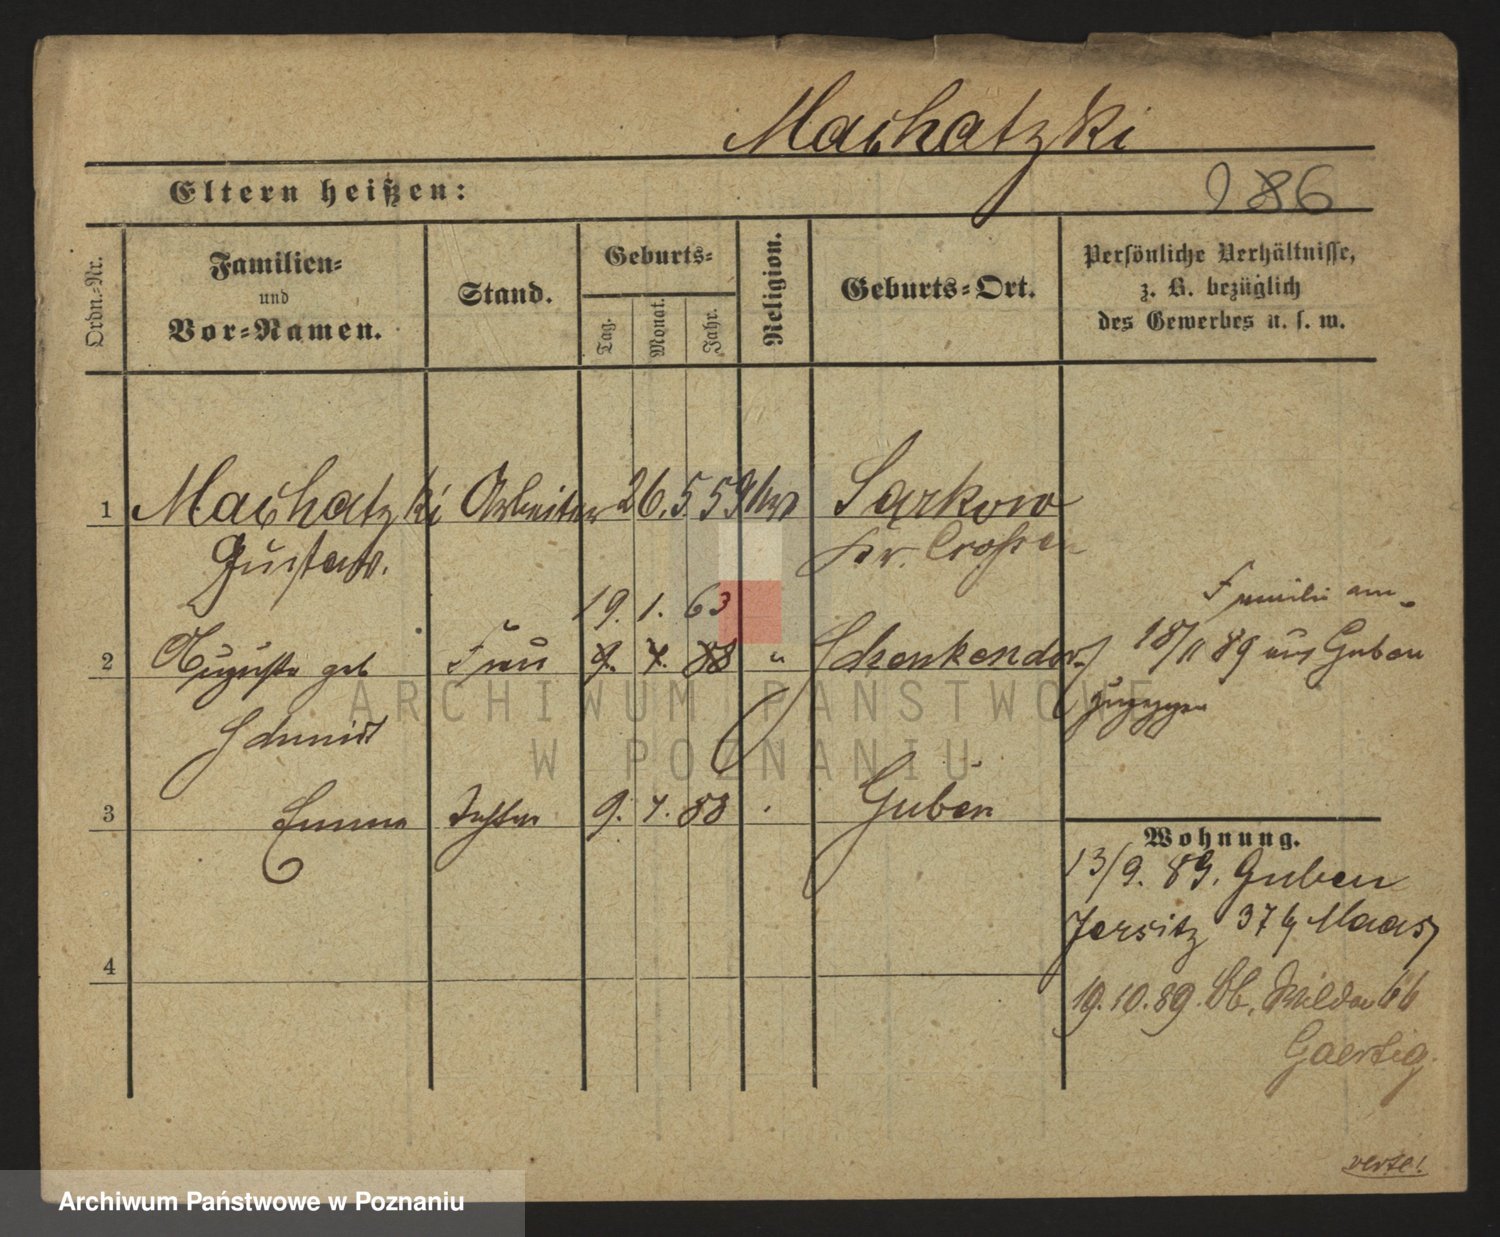 Machatzki
Eltern heißen:
986
Ordn.-Nr.
Familien-
und
Vor-Namen.
Stand.
Geburts-
Tag.
Monat.
Jahr.
Religion.
Geburts-Ort.
Persönliche Verhältnisse,
z. B. bezüglich
des Gewerbes u. s. w.
1 Machatzki Arbeiter 26. 5 59 Sarkow
Gustav. Kr. Crossen
19. 1. 63
2 Auguste geb Frau 9. 4. 88 " Schenkendorf
Schmidt
Familie am
18/11 89 aus Guben
zugezogen
3 Emma Tochter 9. 4. 88 Guben
Wohnung.
13/9. 89. Guben
Jersitz 37 b/ Maass
4
19.10.89. Ob. Wilda 66
Gaertig.
verte!
ARCHIWUM PAŃSTWOWE
W POZNANIU
Archiwum Państwowe w Poznaniu